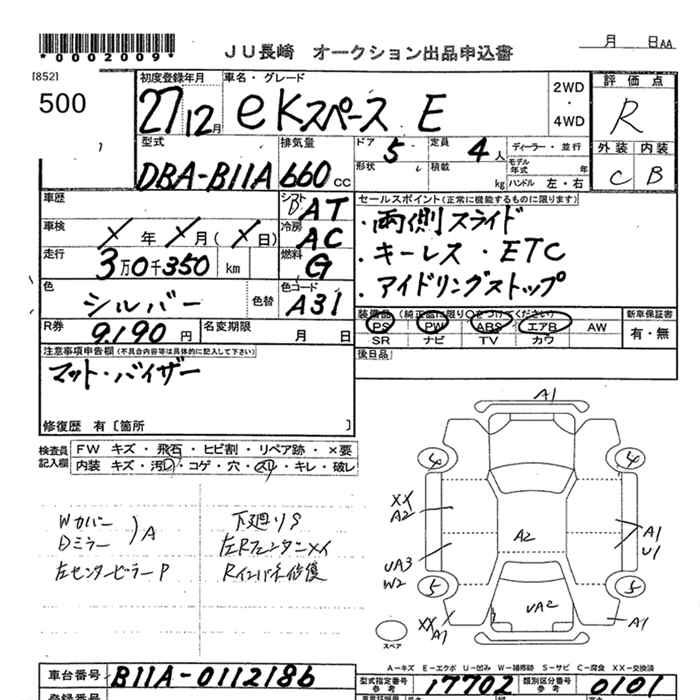 *0002009*
JU長崎 オークション出品申込書
月 日AA
[852]
500
初度登録年月 27 12月
車名・グレード eKスペース E
2WD・4WD
評価点 R
外装 内装
C B
型式 DBA-B11A
排気量 660 CC
ドア 5
形状
定員 4人
積載 kg
ディーラー・並行
モデル年式 年
ハンドル 左・右
車歴
シフト AT
車検 × 年 × 月 (× 日)
冷房 AC
走行 3万0千350 km
燃料 G
セールスポイント(正常に機能するものに限ります)
・両側スライド
・キーレス ・ETC
・アイドリングストップ
色 シルバー
色替
色コード A31
R券 9,190 円
名変期限 月 日
装備品 (純正品に限り○をつけてください)
PS PW ABS エアB AW
SR ナビ TV カワ
新車保証書 有・無
後日品
注意事項申告欄(不具合内容等は具体的に記入して下さい)
マット・バイザー
修復歴 有〔箇所 〕
検査員記入欄
FW キズ・飛石・ヒビ割・リペア跡・×要
内装 キズ・汚れ・コゲ・穴・スレ・キレ・破レ
Wカバー
Dミラー ) A
左センターピラーP
下廻りS
左Rフェンダ
Rインパネ修復
A1
4 4
XX
A2
A2
A1
U1
UA3
W2
5 5
UA2
XX
A1
A1
スペア
A-キズ E-エクボ U-凹み W-補修跡 S-サビ C-腐食 XX-交換済
車台番号 B11A-0112186
型式指定番号 参考 17702
類別区分番号 参考 0101
登録番号